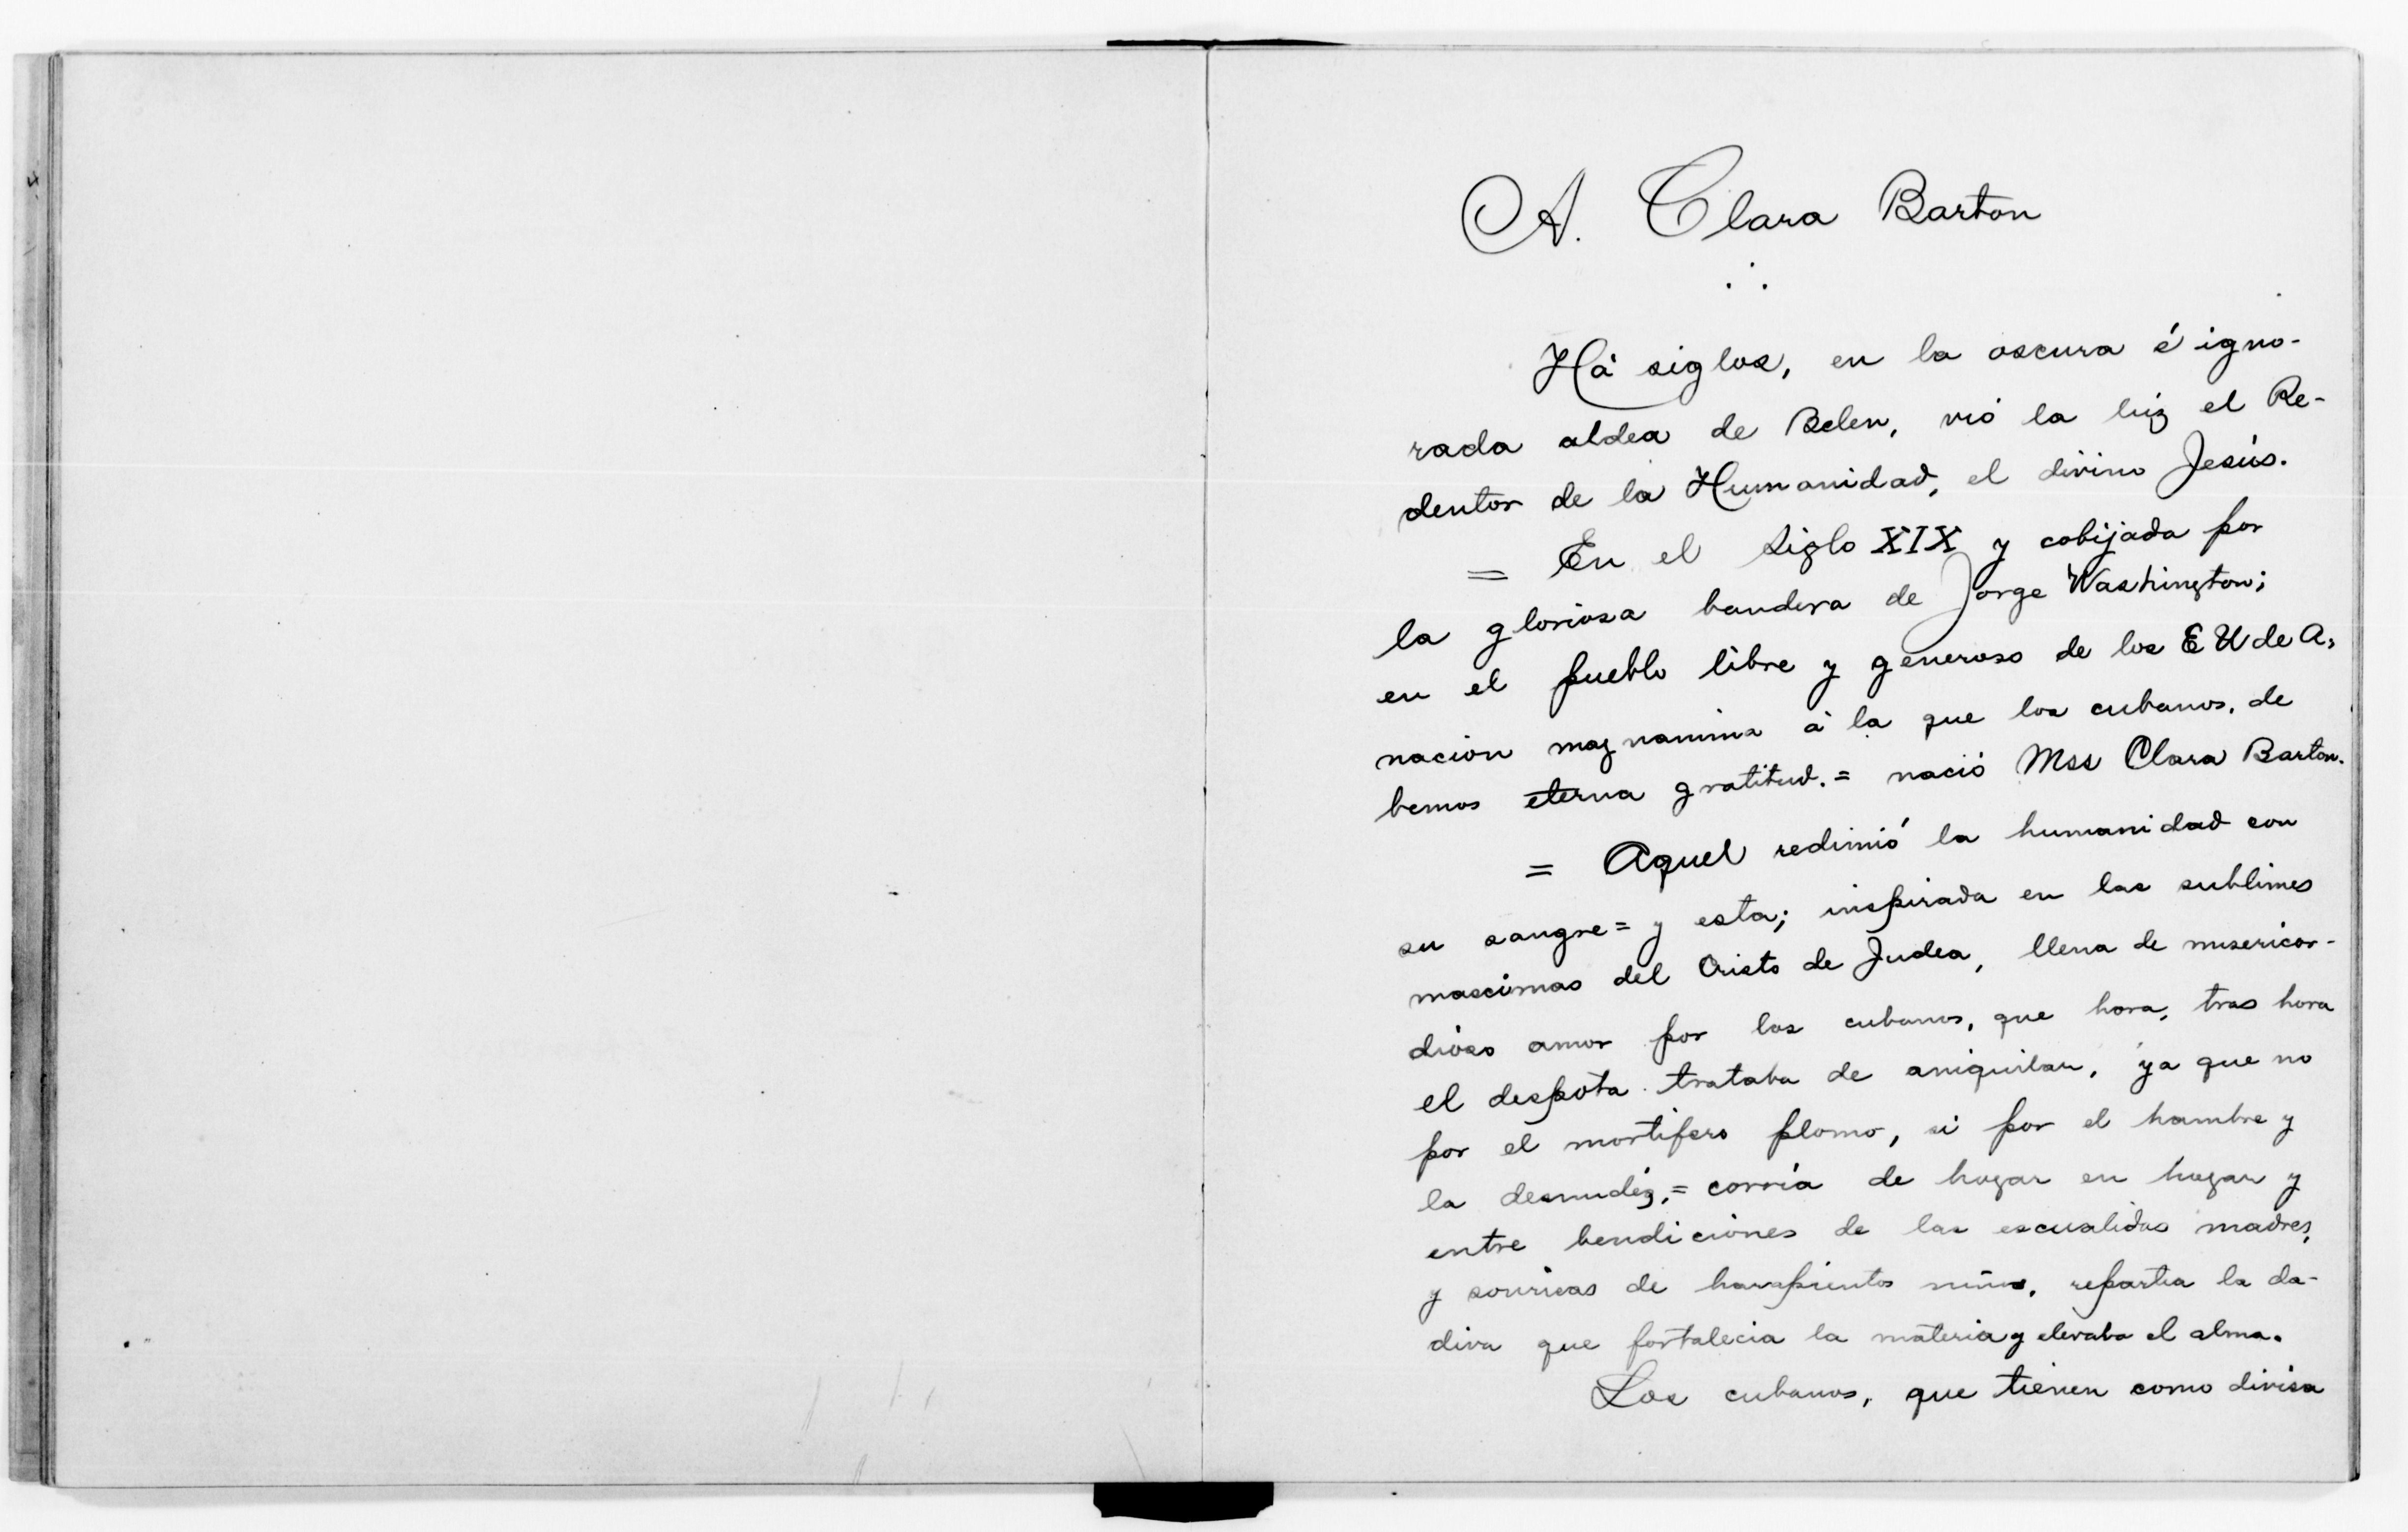 A. Clara Barton
Há siglos, en la oscura é igno-
rada aldea de Belen, vió la lúz el Re-
dentor de la Humanidad, el divino Jesús.
= En el siglo XIX y cobijada por
la gloriosa bandera de Jorge Washington;
en el pueblo libre y generoso de los E U de A,
nacion magnanima á la que los cubanos, de
bemos eterna gratitud. = nació Mss Clara Barton.
= Aquel redimió la humanidad con
su sangre = y esta; inspirada en las sublimes
mascimas del Cristo de Judea, llena de misericor-
dióso amor por los cubanos, que hora, tras hora
el despota trataba de aniquilar, ya que no
por el mortifero plomo, si por el hambre y
la desnudéz, = corría de hogar en hogar y
entre bendiciones de las escualidas madres,
y sonrisas de harapientos niños, repartia la da-
diva que fortalecia la materia y elevaba el alma.
Los cubanos, que tienen como divisa